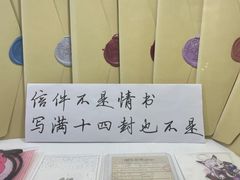 信件不是情书
写满十四封也不是